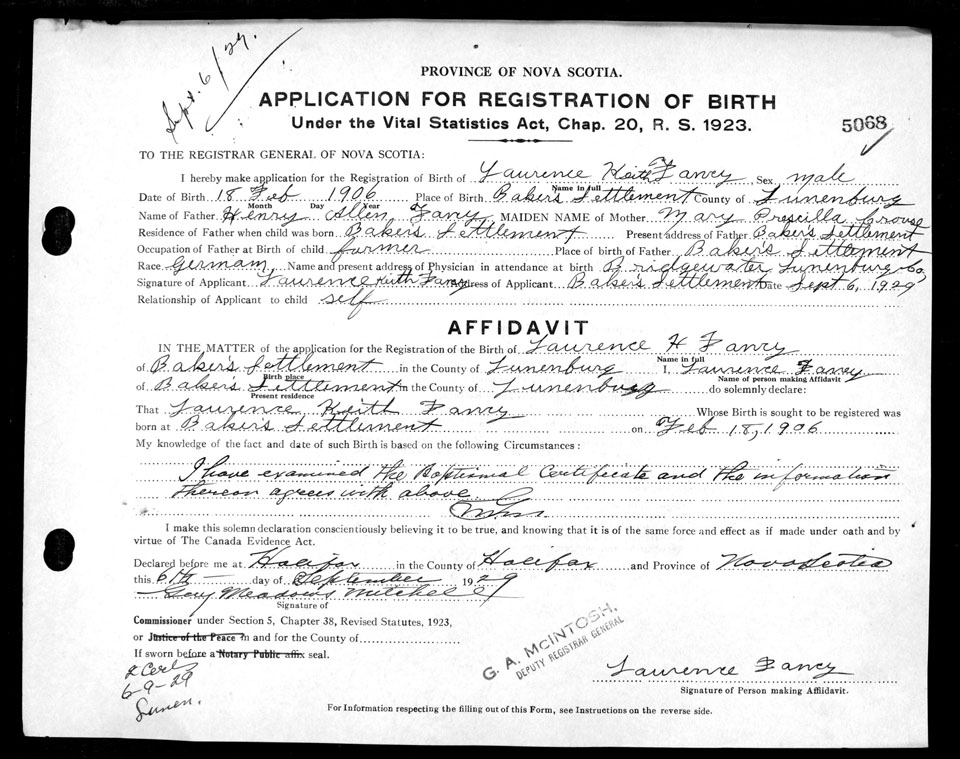 Sept. 6/29.
PROVINCE OF NOVA SCOTIA.
APPLICATION FOR REGISTRATION OF BIRTH
Under the Vital Statistics Act, Chap. 20, R. S. 1923.
5068
TO THE REGISTRAR GENERAL OF NOVA SCOTIA:
I hereby make application for the Registration of Birth of Laurence Keith Fancy, Sex male
Name in full
Date of Birth 18 Feb 1906 Place of Birth Baker's Settlement County of Lunenburg
Month Day Year
Name of Father Henry Allen Fancy MAIDEN NAME of Mother Mary Prescilla Crouse
Residence of Father when child was born Baker's Settlement Present address of Father Baker's Settlement
Occupation of Father at Birth of child farmer Place of birth of Father Baker's Settlement
Race German Name and present address of Physician in attendance at birth Bridgewater, Lunenburg Co,
Signature of Applicant Laurence Keith Fancy Address of Applicant Baker's Settlement Date Sept 6, 1929
Relationship of Applicant to child self
AFFIDAVIT
IN THE MATTER of the application for the Registration of the Birth of Laurence K Fancy
Name in full
of Baker's Settlement in the County of Lunenburg I, Laurence Fancy
Birth place Name of person making Affidavit
of Baker's Settlement in the County of Lunenburg do solemnly declare:
Present residence
That Laurence Keith Fancy Whose Birth is sought to be registered was
born at Baker's Settlement on Feb 18, 1906
My knowledge of the fact and date of such Birth is based on the following Circumstances:
I have examined the Baptismal Certificate and the information
thereon agrees with above.
I make this solemn declaration conscientiously believing it to be true, and knowing that it is of the same force and effect as if made under oath and by
virtue of The Canada Evidence Act.
Declared before me at Halifax in the County of Halifax and Province of Nova Scotia
this 6th day of September 1929
Meadows Mitchell
Signature of
Commissioner under Section 5, Chapter 38, Revised Statutes, 1923,
or Justice of the Peace in and for the County of
If sworn before a Notary Public affix seal.
G. A. MCINTOSH.
DEPUTY REGISTRAR GENERAL
2 Certs
6-9-29
Lunen.
Laurence Fancy
Signature of Person making Affidavit.
For Information respecting the filling out of this Form, see Instructions on the reverse side.